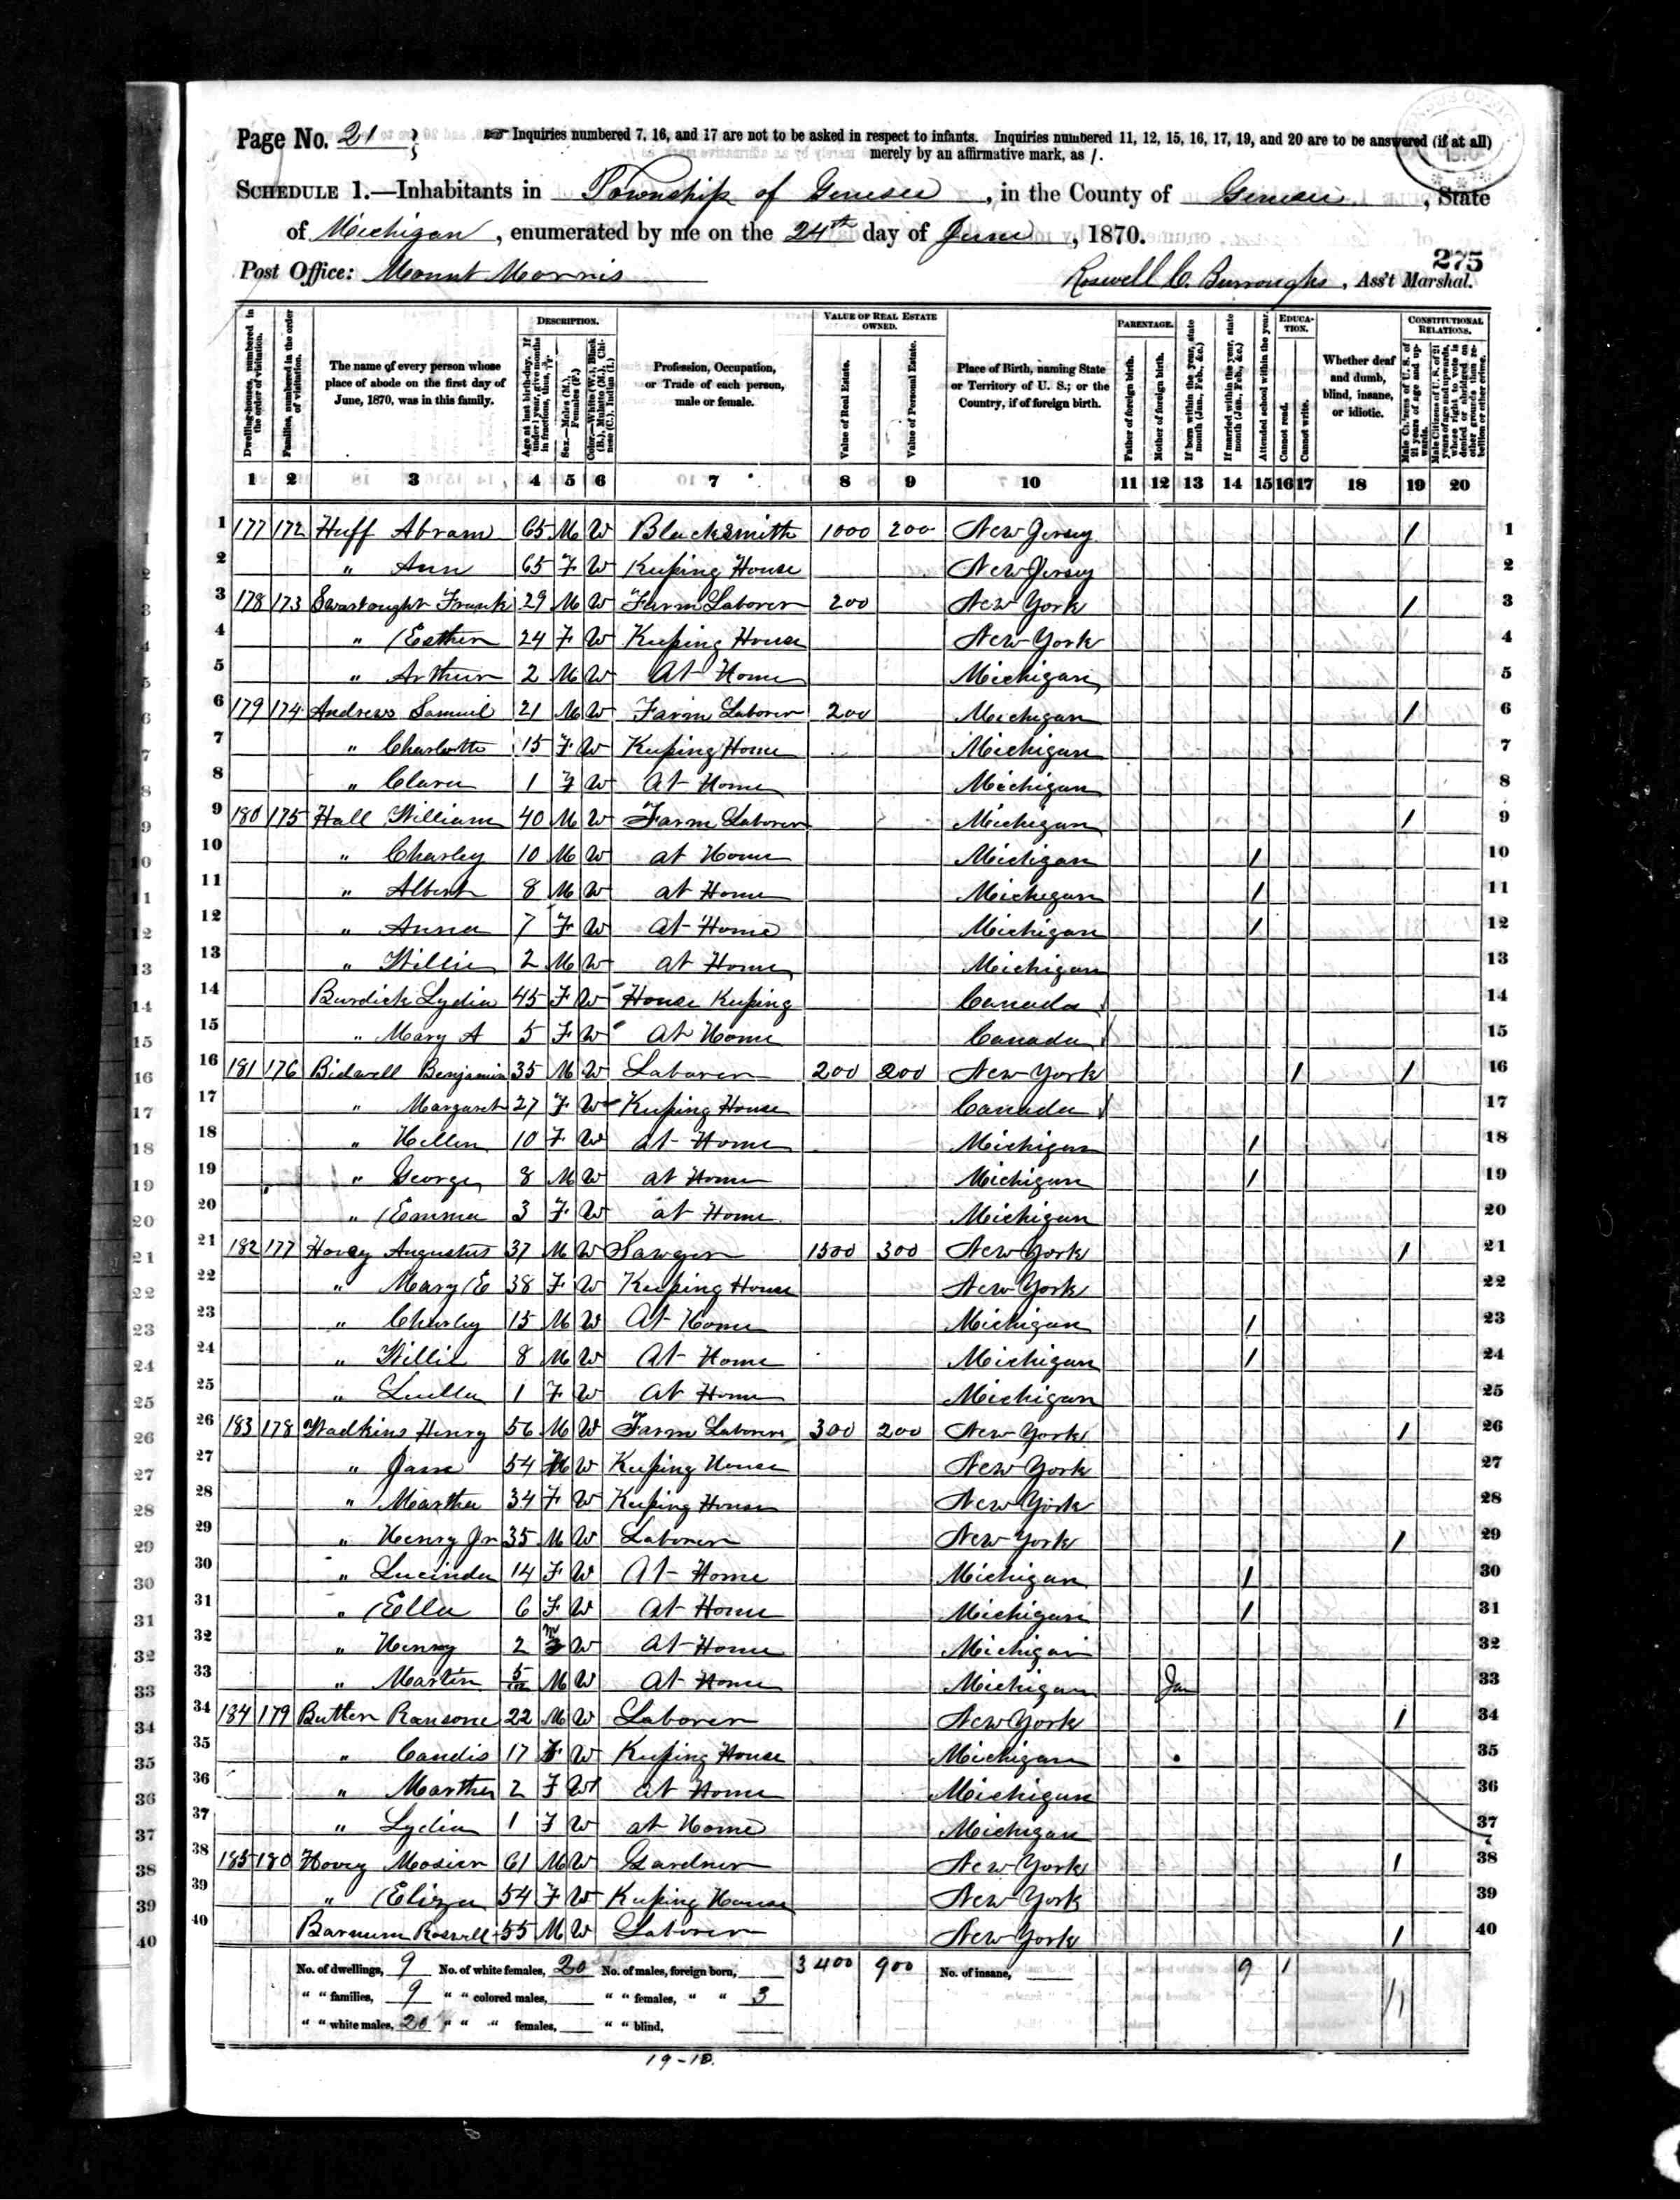 Page No. 21 Inquiries numbered 7, 16, and 17 are not to be asked in respect to infants. Inquiries numbered 11, 12, 15, 16, 17, 19, and 20 are to be answered (if at all)
merely by an affirmative mark, as /.
SCHEDULE 1.—Inhabitants in Township of Genesee, in the County of Genesee, State
of Michigan, enumerated by me on the 24th day of June, 1870.
275
Post Office: Mount Morris Roswell C. Burroughs, Ass't Marshal.
Dwelling-houses, numbered in the order of visitation.
Families, numbered in the order of visitation.
The name of every person whose place of abode on the first day of June, 1870, was in this family.
DESCRIPTION.
Age at last birth-day. If under 1 year, give months in fractions, thus,
Sex.—Males (M.), Females (F.)
Color.—White (W.), Black (B.), Mulatto (M.), Chinese (C.), Indian (I.)
Profession, Occupation, or Trade of each person, male or female.
VALUE OF REAL ESTATE OWNED.
Value of Real Estate.
Value of Personal Estate.
Place of Birth, naming State or Territory of U. S.; or the Country, if of foreign birth.
PARENTAGE.
Father of foreign birth.
Mother of foreign birth.
If born within the year, state month (Jan., Feb., &c.)
If married within the year, state month (Jan., Feb., &c.)
Attended school within the year.
EDUCATION.
Cannot read.
Cannot write.
Whether deaf and dumb, blind, insane, or idiotic.
CONSTITUTIONAL RELATIONS.
Male Citizens of U. S. of 21 years of age and upwards.
Male Citizens of U. S. of 21 years of age and upwards, whose right to vote is denied or abridged on other grounds than rebellion or other crime.
1 2 3 4 5 6 7 8 9 10 11 12 13 14 15 16 17 18 19 20
1 177 172 Huff Abram 65 M W Blacksmith 1000 200 New Jersey / 1
2 " Ann 65 F W Keeping House New Jersey 2
3 178 173 Swartought Frank 29 M W Farm Laborer 200 New York / 3
4 " Esther 24 F W Keeping House New York 4
5 " Arthur 2 M W At Home Michigan 5
6 179 174 Andrews Samuel 21 M W Farm Laborer 200 Michigan / 6
7 " Charlotte 15 F W Keeping House Michigan 7
8 " Clara 1 F W At Home Michigan 8
9 180 175 Hall William 40 M W Farm Laborer Michigan / 9
10 " Charley 10 M W at Home Michigan / 10
11 " Albert 8 M W at Home Michigan / 11
12 " Anna 7 F W At Home Michigan / 12
13 " Willie 2 M W at Home Michigan 13
14 Burdick Lydia 45 F W House Keeping Canada 14
15 " Mary A 5 F W At Home Canada 15
16 181 176 Bidwell Benjamin 35 M W Laborer 200 200 New York / / 16
17 " Margaret 27 F W Keeping House Canada 17
18 " Hellen 10 F W at Home Michigan / 18
19 " George 8 M W at Home Michigan / 19
20 " Emma 3 F W at Home Michigan 20
21 182 177 Hovey Augustus 37 M W Sawyer 1500 300 New York / 21
22 " Mary E 38 F W Keeping House New York 22
23 " Charley 15 M W At Home Michigan / 23
24 " Willie 8 M W At Home Michigan / 24
25 " Luella 1 F W At Home Michigan 25
26 183 178 Wadkins Henry 56 M W Farm Laborer 300 200 New York / 26
27 " Jane 54 F W Keeping House New York 27
28 " Martha 34 F W Keeping House New York 28
29 " Henry Jr 35 M W Laborer New York / 29
30 " Lucinda 14 F W At Home Michigan / 30
31 " Ella 6 F W at Home Michigan / 31
32 " Henry 2 M W At Home Michigan 32
33 " Martin 5/12 M W At Home Michigan Jan 33
34 184 179 Butten Ransome 22 M W Laborer New York / 34
35 " Candis 17 F W Keeping House Michigan 35
36 " Martha 2 F W at Home Michigan 36
37 " Lydia 1 F W at Home Michigan 37
38 185 180 Hovey Mosier 61 M W Gardner New York / 38
39 " Eliza 54 F W Keeping House New York 39
40 Barnum Roswell 55 M W Laborer New York / 40
No. of dwellings, 9 No. of white females, 20 No. of males, foreign born, 3400 900 No. of insane, 9 1
" " families, 9 " " colored males, " " females, " " 3 11
" " white males, 20 " " " females, " " blind,
19-18.